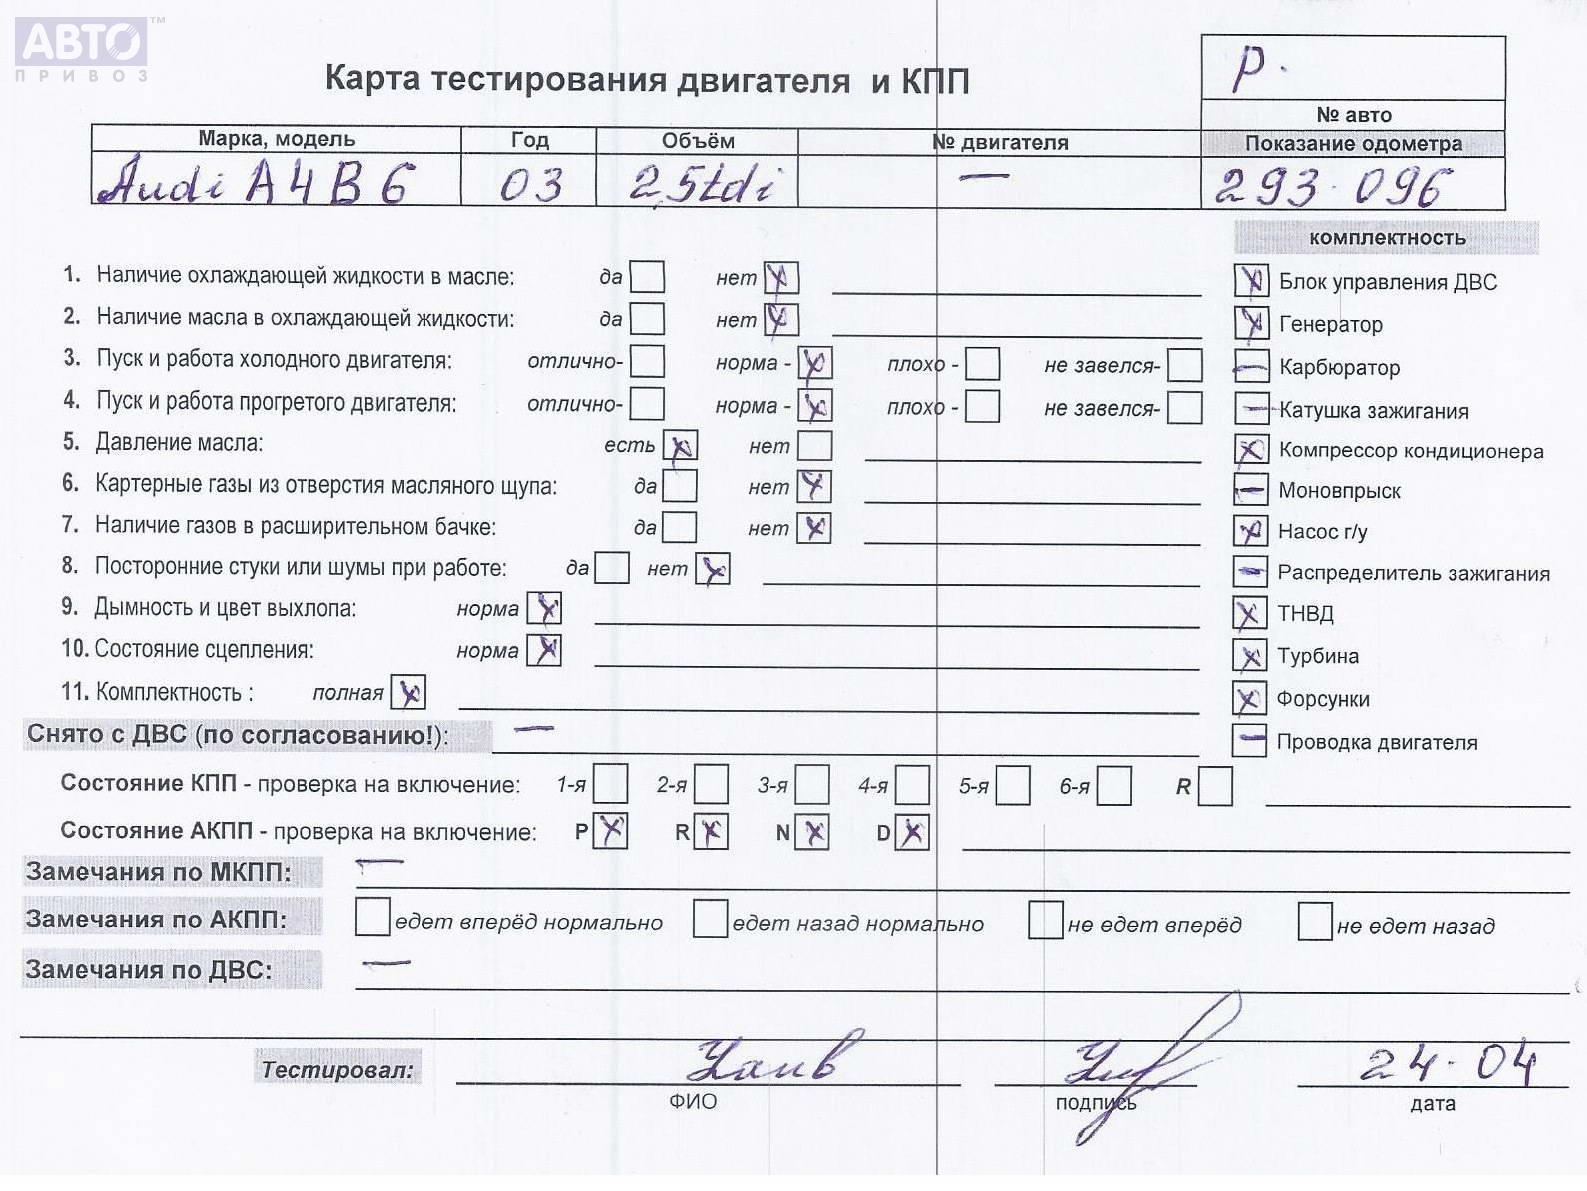 АВТО™
ПРИВОЗ
Карта тестирования двигателя и КПП
р.
№ авто
Марка, модель Год Объём № двигателя Показание одометра
Audi A4 B6 03 2,5tdi — 293.096
комплектность
1. Наличие охлаждающей жидкости в масле: да нет
Блок управления ДВС
2. Наличие масла в охлаждающей жидкости: да нет
Генератор
3. Пуск и работа холодного двигателя: отлично- норма - плохо - не завелся-
Карбюратор
4. Пуск и работа прогретого двигателя: отлично- норма - плохо - не завелся-
Катушка зажигания
5. Давление масла: есть нет
Компрессор кондиционера
6. Картерные газы из отверстия масляного щупа: да нет
Моновпрыск
7. Наличие газов в расширительном бачке: да нет
Насос г/у
8. Посторонние стуки или шумы при работе: да нет
Распределитель зажигания
9. Дымность и цвет выхлопа: норма
ТНВД
10. Состояние сцепления: норма
Турбина
11. Комплектность : полная
Форсунки
Снято с ДВС (по согласованию!): —
Проводка двигателя
Состояние КПП - проверка на включение: 1-я 2-я 3-я 4-я 5-я 6-я R
Состояние АКПП - проверка на включение: P R N D
Замечания по МКПП: —
Замечания по АКПП: едет вперёд нормально едет назад нормально не едет вперёд не едет назад
Замечания по ДВС: —
Тестировал: 24.04
ФИО подпись дата